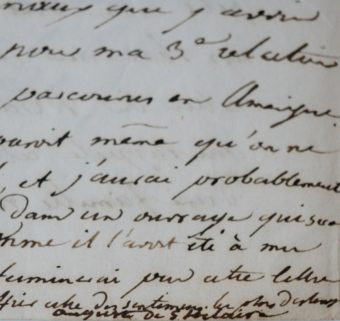 que j'avois
pour ma 3e relation
parcourues en Amérique
paroit même qu'on ne
et j'aurai probablement
Dans un ouvrage qui sera
comme il l'avoit été à ma
terminerai par cette lettre
sentimens les plus
Auguste de St Hilaire